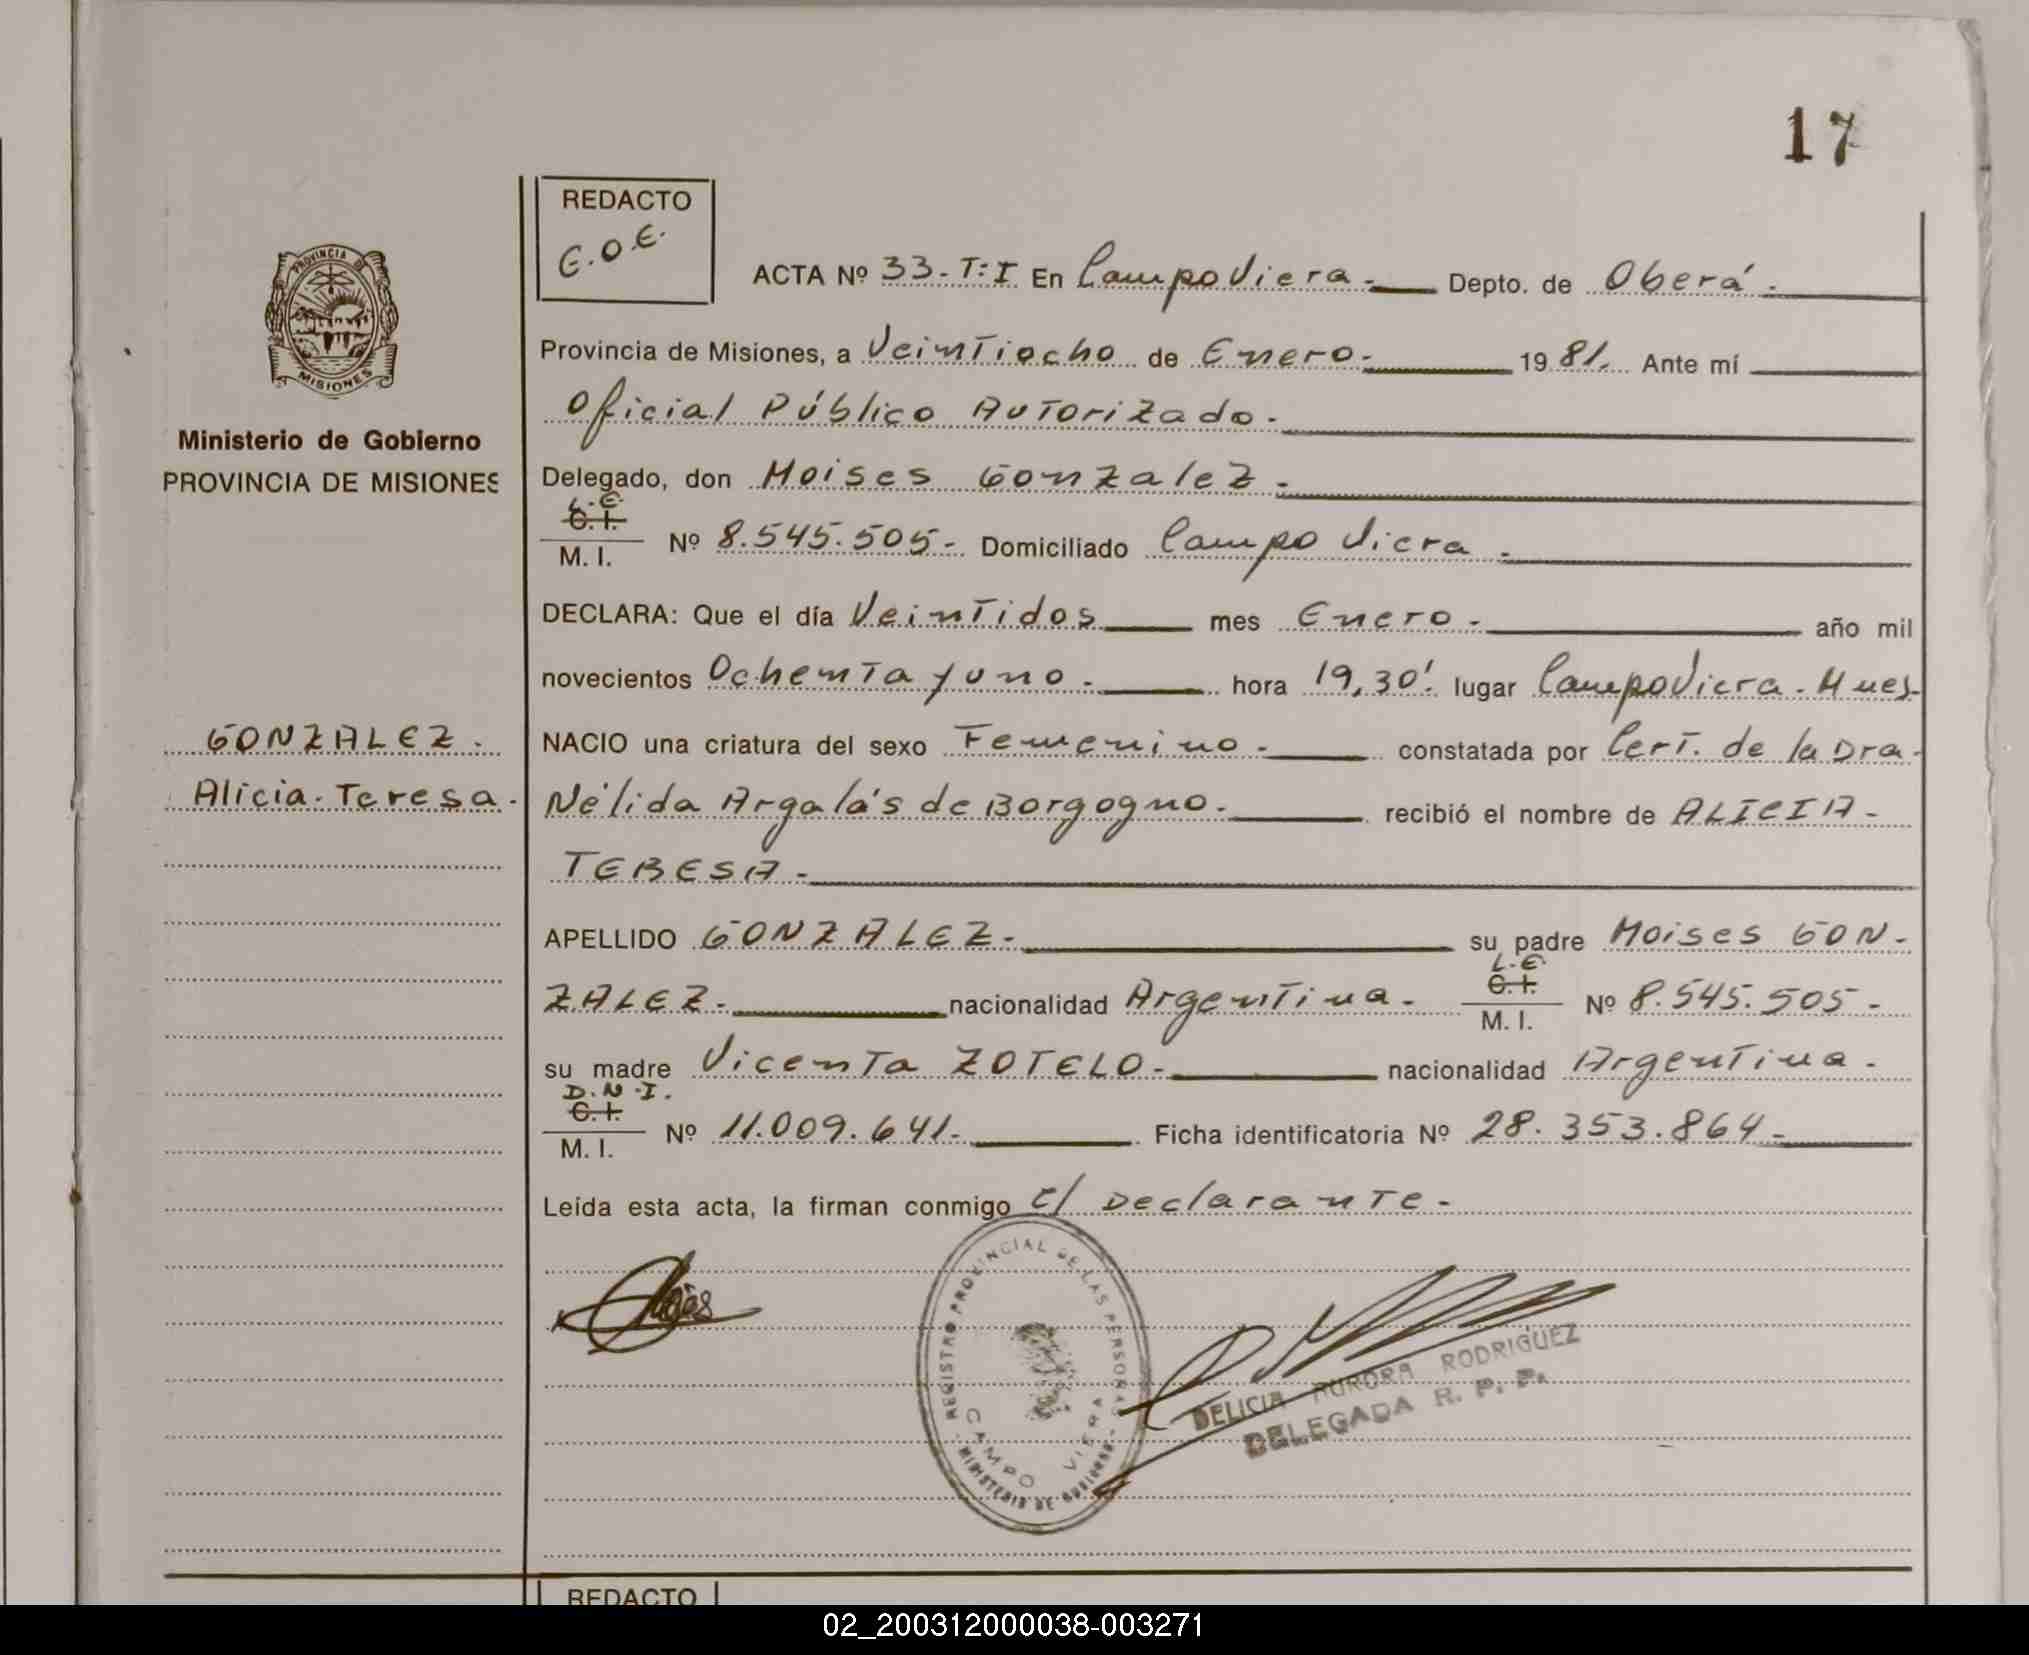 17
REDACTO
E.O.E.
PROVINCIA DE
MISIONES
Ministerio de Gobierno
PROVINCIA DE MISIONES
ACTA Nº 33-T:I En Campo Viera.- Depto. de Oberá.
Provincia de Misiones, a Veintiocho de Enero.- 1981. Ante mí
Oficial Público Autorizado.-
Delegado, don Moises Gonzalez.-
L.E.
C.I.
M. I. Nº 8.545.505.- Domiciliado Campo Viera.-
DECLARA: Que el día Veintidos mes Enero.- año mil
novecientos Ochenta y uno.- hora 19,30'. lugar Campo Viera.
GONZALEZ. NACIO una criatura del sexo Femenino.- constatada por Cert. de la Dra.
Alicia Teresa. Nélida Argalás de Borgogno.- recibió el nombre de ALICIA-
TERESA.-
APELLIDO GONZALEZ.- su padre Moises GON-
L.E.
C.I.
ZALEZ.- nacionalidad Argentina.- M. I. Nº 8.545.505.-
su madre Vicenta ZOTELO.- nacionalidad Argentina.-
D.N.I.
C.I.
M. I. Nº 11.009.641.- Ficha identificatoria Nº 28.353.864.-
Leída esta acta, la firman conmigo el Declarante.-
REGISTRO PROVINCIAL DE LAS PERSONAS
CAMPO VIERA
MINISTERIO DE GOBIERNO
DELICIA AURORA RODRIGUEZ
DELEGADA R. P. P.
REDACTO
02_200312000038-003271